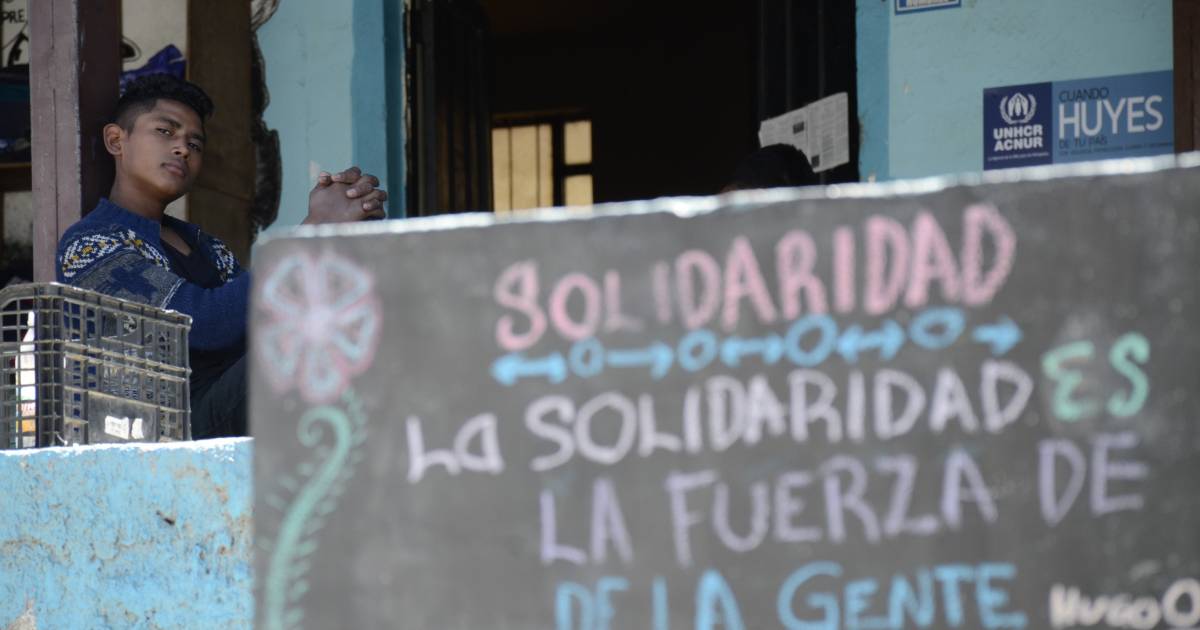 PRE
UNHCR
ACNUR
CUANDO
HUYES
DE TU PAÍS
SOLIDARIDAD
LA SOLIDARIDAD ES
LA FUERZA DE
DE LA GENTE HUGO O